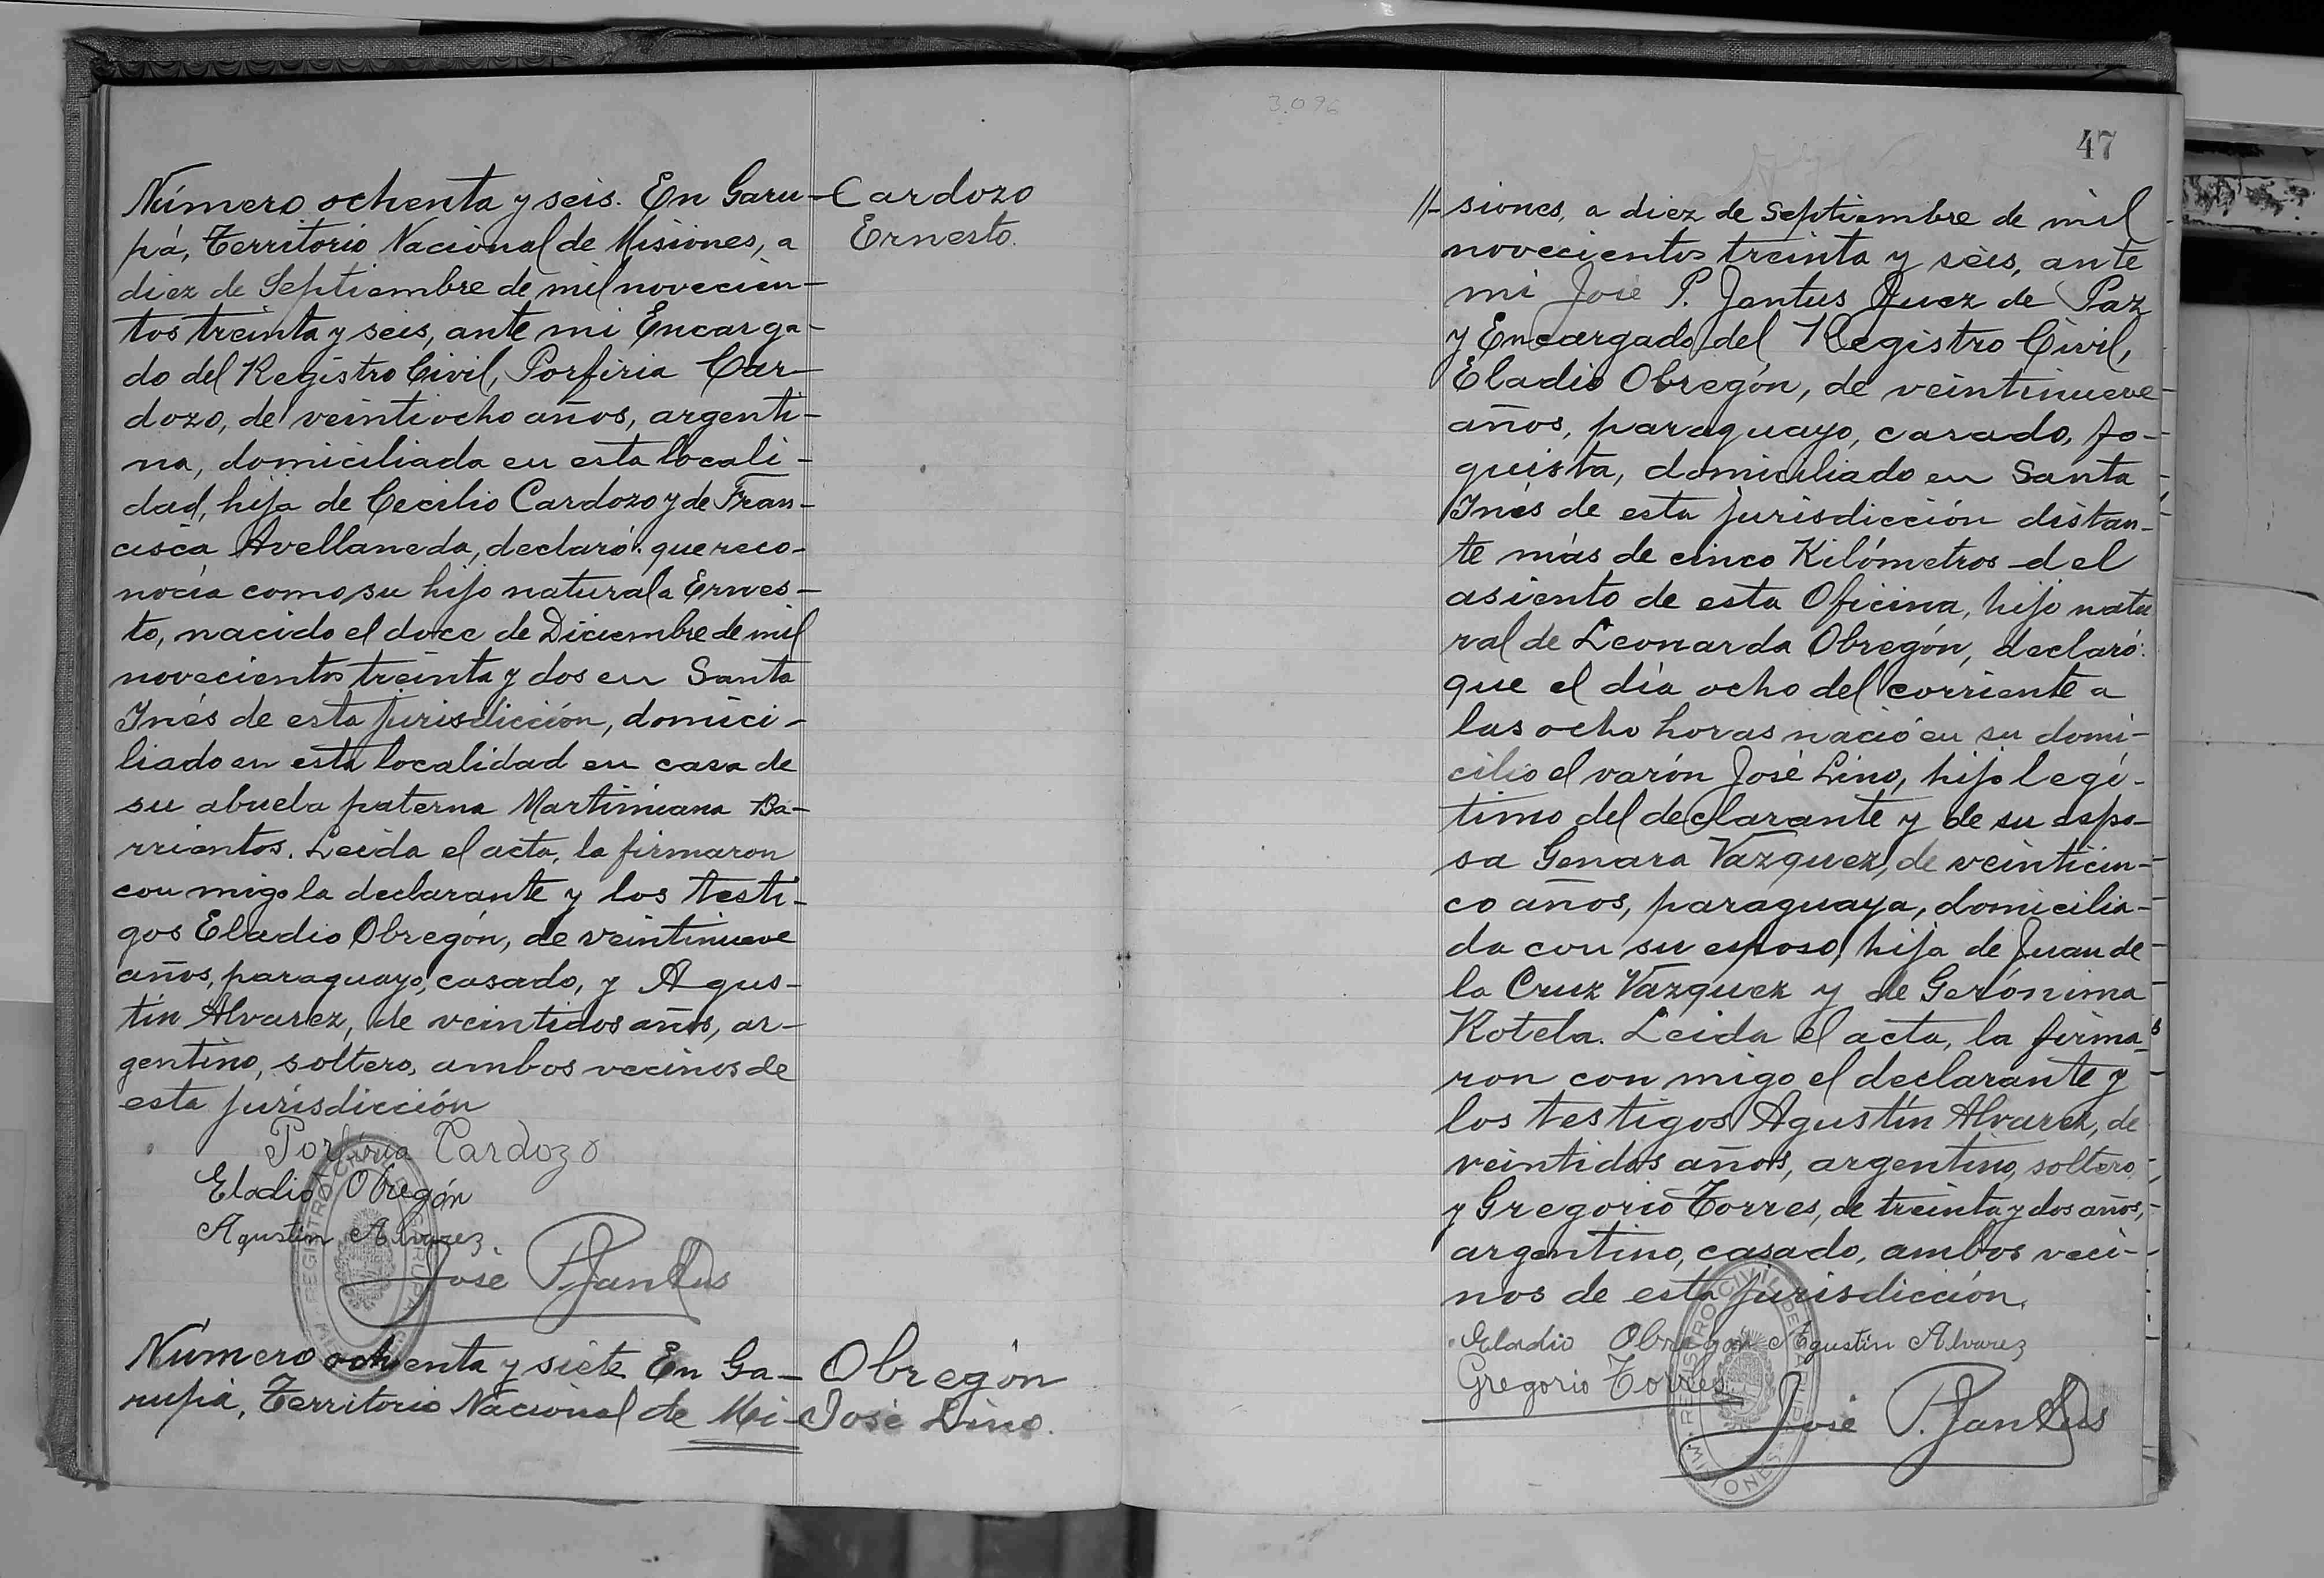 Número ochenta y seis. En Garu-
pá, Territorio Nacional de Misiones, a
diez de Septiembre de mil novecien-
tos treinta y seis, ante mi Encarga-
do del Registro Civil, Porfiria Car-
dozo, de veintiocho años, argenti-
na, domiciliada en esta locali-
dad, hija de Cecilio Cardozo y de Fran-
cisca Avellaneda, declaró: que reco-
nocía como su hijo natural a Ernes-
to, nacido el doce de Diciembre de mil
novecientos treinta y dos en Santa
Inés de esta jurisdicción, domici-
liado en esta localidad en casa de
su abuela paterna Martiniana Ba-
rrientos. Leida el acta, la firmaron
con migo la declarante y los testi-
gos Eladio Obregón, de veintinueve
años, paraguayo, casado, y Agus-
tín Alvarez, de veintidos años, ar-
gentino, soltero, ambos vecinos de
esta jurisdicción
Porfiria Cardozo
Eladio Obregón
Agustin Alvarez
José P. Jantus
Cardozo
Ernesto.
Número ochenta y siete En Ga-
rupá, Territorio Nacional de Mi-
Obregón
José Lino.
3.096
47
//- siones, a diez de Septiembre de mil
novecientos treinta y seis, ante
mi José P. Jantus Juez de Paz
y Encargado del Registro Civil,
Eladio Obregón, de veintinueve
años, paraguayo, casado, fo-
guista, domiciliado en Santa
Inés de esta jurisdicción distan-
te más de cinco Kilómetros del
asiento de esta Oficina, hijo natu
ral de Leonarda Obregón, declaró:
que el día ocho del corriente a
las ocho horas nació en su domi-
cilio el varón José Lino, hijo legí-
timo del declarante y de su espo-
sa Genara Vazquez, de veinticin-
co años, paraguaya, domicilia-
da con su esposo, hija de Juan de
la Cruz Vazquez y de Gerónima
Kotela. Leida el acta, la firma-
ron con migo el declarante y
los testigos Agustín Alvarez, de
veintidos años, argentino, soltero,
y Gregorio Torres, de treinta y dos años,
argentino, casado, ambos veci-
nos de esta jurisdicción.
Eladio Obregón Agustin Alvarez
Gregorio Torres
José P. Jantus
REGISTRO CIVIL DE GARUPA MISIONES